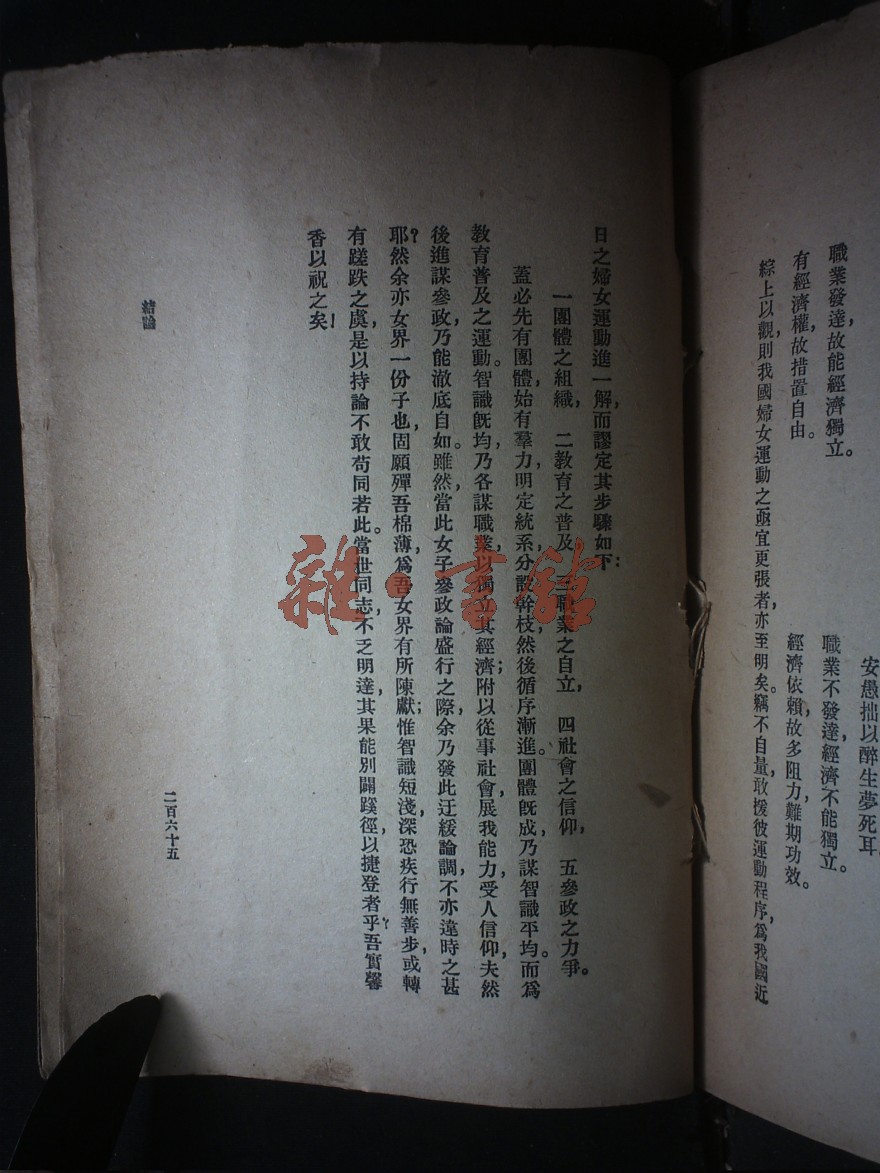 安愚拙以醉生夢死耳
職業發達，故能經濟獨立。
職業不發達，經濟不能獨立。
有經濟權，故措置自由。
經濟依賴，故多阻力，難期功效。
綜上以觀，則我國婦女運動之亟宜更張者，亦至明矣。竊不自量，敢援彼運動程序，爲我國近
日之婦女運動進一解，而謬定其步驟如下：
一團體之組織，二教育之普及，三職業之自立，四社會之信仰，五參政之力爭。
蓋必先有團體，始有羣力，明定統系，分設幹枝，然後循序漸進。團體旣成，乃謀智識平均。而爲
教育普及之運動。智識旣均，乃各謀職業，以獨立其經濟；附以從事社會，展我能力，受人信仰，夫然
後進謀參政，乃能澈底自如。雖然，當此女子參政論盛行之際，余乃發此迂緩論調，不亦遠時之甚
耶？然余亦女界一份子也，固願殫吾棉薄，爲吾女界有所陳獻；惟智識短淺，深恐疾行無善步，或轉
有蹉跌之虞，是以持論不敢苟同若此。當世同志，不乏明達，其果能別闢蹊徑，以捷登者乎？吾實馨
香以祝之矣！
結論
二百六十五
雜·書館